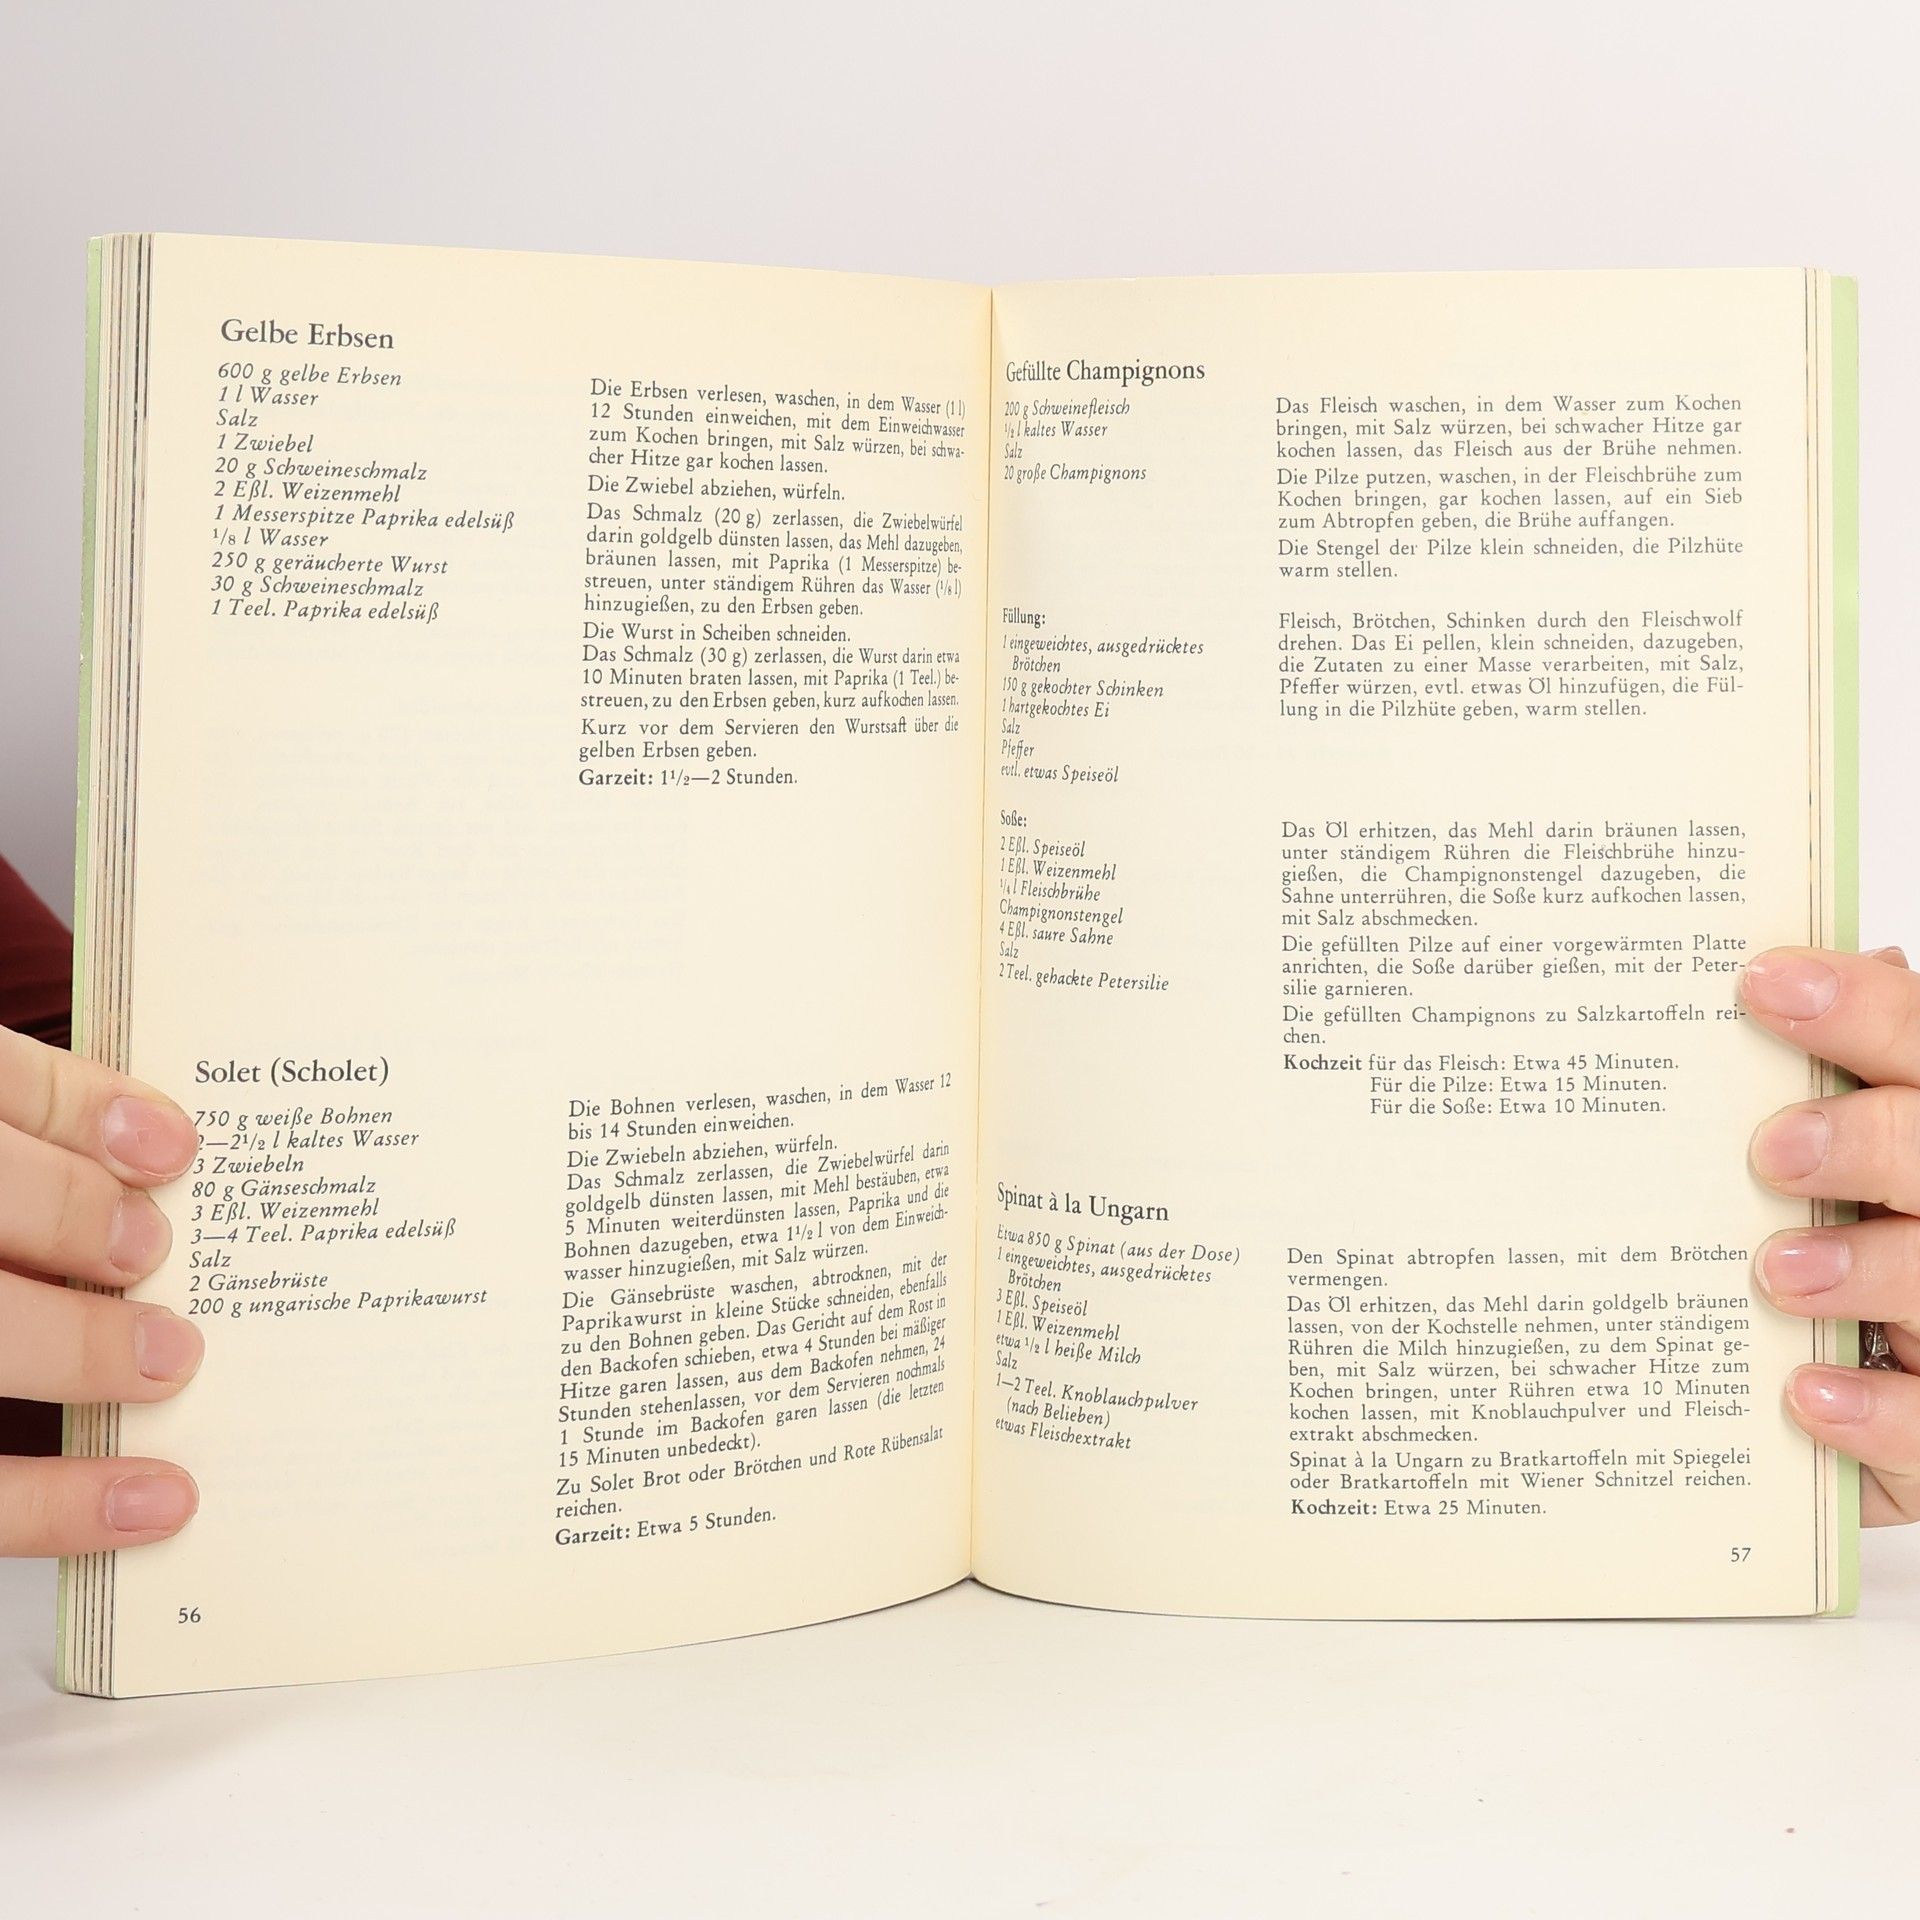 Gelbe Erbsen
600 g gelbe Erbsen
1 l Wasser
Salz
1 Zwiebel
20 g Schweineschmalz
2 Eßl. Weizenmehl
1 Messerspitze Paprika edelsüß
1/8 l Wasser
250 g geräucherte Wurst
30 g Schweineschmalz
1 Teel. Paprika edelsüß
Die Erbsen verlesen, waschen, in dem Wasser (1 l)
12 Stunden einweichen, mit dem Einweichwasser
zum Kochen bringen, mit Salz würzen, bei schwa-
cher Hitze gar kochen lassen.
Die Zwiebel abziehen, würfeln.
Das Schmalz (20 g) zerlassen, die Zwiebelwürfel
darin goldgelb dünsten lassen, das Mehl dazugeben,
bräunen lassen, mit Paprika (1 Messerspitze) be-
streuen, unter ständigem Rühren das Wasser (1/8 l)
hinzugießen, zu den Erbsen geben.
Die Wurst in Scheiben schneiden.
Das Schmalz (30 g) zerlassen, die Wurst darin etwa
10 Minuten braten lassen, mit Paprika (1 Teel.) be-
streuen, zu den Erbsen geben, kurz aufkochen lassen.
Kurz vor dem Servieren den Wurstsaft über die
gelben Erbsen geben.
Garzeit: 1 1/2—2 Stunden.
Solet (Scholet)
750 g weiße Bohnen
2—2 1/2 l kaltes Wasser
3 Zwiebeln
80 g Gänseschmalz
3 Eßl. Weizenmehl
3—4 Teel. Paprika edelsüß
Salz
2 Gänsebrüste
200 g ungarische Paprikawurst
Die Bohnen verlesen, waschen, in dem Wasser 12
bis 14 Stunden einweichen.
Die Zwiebeln abziehen, würfeln.
Das Schmalz zerlassen, die Zwiebelwürfel darin
goldgelb dünsten lassen, mit Mehl bestäuben, etwa
5 Minuten weiterdünsten lassen, Paprika und die
Bohnen dazugeben, etwa 1 1/2 l von dem Einweich-
wasser hinzugießen, mit Salz würzen.
Die Gänsebrüste waschen, abtrocknen, mit der
Paprikawurst in kleine Stücke schneiden, ebenfalls
zu den Bohnen geben. Das Gericht auf dem Rost in
den Backofen schieben, etwa 4 Stunden bei mäßiger
Hitze garen lassen, aus dem Backofen nehmen, 24
Stunden stehenlassen, vor dem Servieren nochmals
1 Stunde im Backofen garen lassen (die letzten
15 Minuten unbedeckt).
Zu Solet Brot oder Brötchen und Rote Rübensalat
reichen.
Garzeit: Etwa 5 Stunden.
56
Gefüllte Champignons
200 g Schweinefleisch
1/2 l kaltes Wasser
Salz
20 große Champignons
Das Fleisch waschen, in dem Wasser zum Kochen
bringen, mit Salz würzen, bei schwacher Hitze gar
kochen lassen, das Fleisch aus der Brühe nehmen.
Die Pilze putzen, waschen, in der Fleischbrühe zum
Kochen bringen, gar kochen lassen, auf ein Sieb
zum Abtropfen geben, die Brühe auffangen.
Die Stengel der Pilze klein schneiden, die Pilzhüte
warm stellen.
Füllung:
1 eingeweichtes, ausgedrücktes
Brötchen
150 g gekochter Schinken
1 hartgekochtes Ei
Salz
Pfeffer
evtl. etwas Speiseöl
Fleisch, Brötchen, Schinken durch den Fleischwolf
drehen. Das Ei pellen, klein schneiden, dazugeben,
die Zutaten zu einer Masse verarbeiten, mit Salz,
Pfeffer würzen, evtl. etwas Öl hinzufügen, die Fül-
lung in die Pilzhüte geben, warm stellen.
Soße:
2 Eßl. Speiseöl
1 Eßl. Weizenmehl
1/4 l Fleischbrühe
Champignonstengel
4 Eßl. saure Sahne
Salz
2 Teel. gehackte Petersilie
Das Öl erhitzen, das Mehl darin bräunen lassen,
unter ständigem Rühren die Fleischbrühe hinzu-
gießen, die Champignonstengel dazugeben, die
Sahne unterrühren, die Soße kurz aufkochen lassen,
mit Salz abschmecken.
Die gefüllten Pilze auf einer vorgewärmten Platte
anrichten, die Soße darüber gießen, mit der Peter-
silie garnieren.
Die gefüllten Champignons zu Salzkartoffeln rei-
chen.
Kochzeit für das Fleisch: Etwa 45 Minuten.
Für die Pilze: Etwa 15 Minuten.
Für die Soße: Etwa 10 Minuten.
Spinat à la Ungarn
Etwa 850 g Spinat (aus der Dose)
1 eingeweichtes, ausgedrücktes
Brötchen
3 Eßl. Speiseöl
1 Eßl. Weizenmehl
etwa 1/2 l heiße Milch
Salz
1—2 Teel. Knoblauchpulver
(nach Belieben)
etwas Fleischextrakt
Den Spinat abtropfen lassen, mit dem Brötchen
vermengen.
Das Öl erhitzen, das Mehl darin goldgelb bräunen
lassen, von der Kochstelle nehmen, unter ständigem
Rühren die Milch hinzugießen, zu dem Spinat ge-
ben, mit Salz würzen, bei schwacher Hitze zum
Kochen bringen, unter Rühren etwa 10 Minuten
kochen lassen, mit Knoblauchpulver und Fleisch-
extrakt abschmecken.
Spinat à la Ungarn zu Bratkartoffeln mit Spiegelei
oder Bratkartoffeln mit Wiener Schnitzel reichen.
Kochzeit: Etwa 25 Minuten.
57